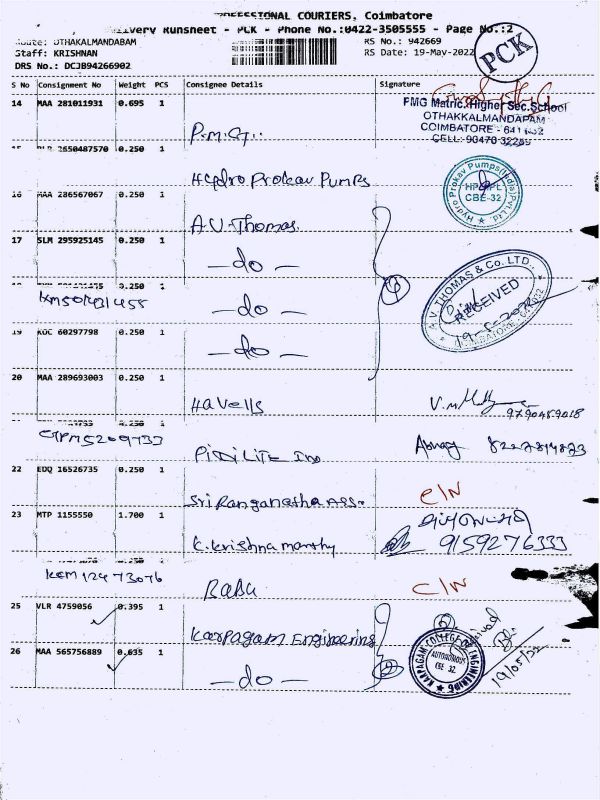 PROFESSIONAL COURIERS, Coimbatore
Delivery Runsheet - PCK - Phone No.:0422-3505555 - Page No.:2
Route: OTHAKALMANDABAM
RS No.: 942669
Staff: KRISHNAN
RS Date: 19-May-2022
DRS No.: DCJB94266902
PCK
S No Consignment No Weight PCS Consignee Details Signature
14 MAA 281011931 0.695 1
P.M.G..
PMG Matric. Higher Sec. School
OTHAKKALMANDAPAM
COIMBATORE - 641 032
CELL: 90470 32269
2650487570 0.250 1
Hydro Prokav Pumps
Hydro Prokav Pumps (India) Pvt. Ltd.
CBE-32
16 MAA 286567067 0.250 1
A.V. Thomas.
17 SLM 295925145 0.250 1
- do -
A.V. THOMAS & Co. LTD.,
RECEIVED
COIMBATORE
- do -
19 KOC 60297798 0.250 1
- do -
4
20 MAA 289693003 0.250 1
Havells
V.M
9790489018
0.250
PIDILITE Ind
22 EDQ 16526735 0.250 1
Sri Ranganatha Ass.
C/N
23 MTP 1155550 1.700 1
K. Krishna Manthy
9159276333
KEM 12473076
BABU
C/N
25 VLR 4759056 0.395 1
Karpagam Engineering
26 MAA 565756889 0.635 1
- do -
2
KARPAGAM COLLEGE OF ENGINEERING
AUTONOMOUS
CBE 32
Received
19/05/22